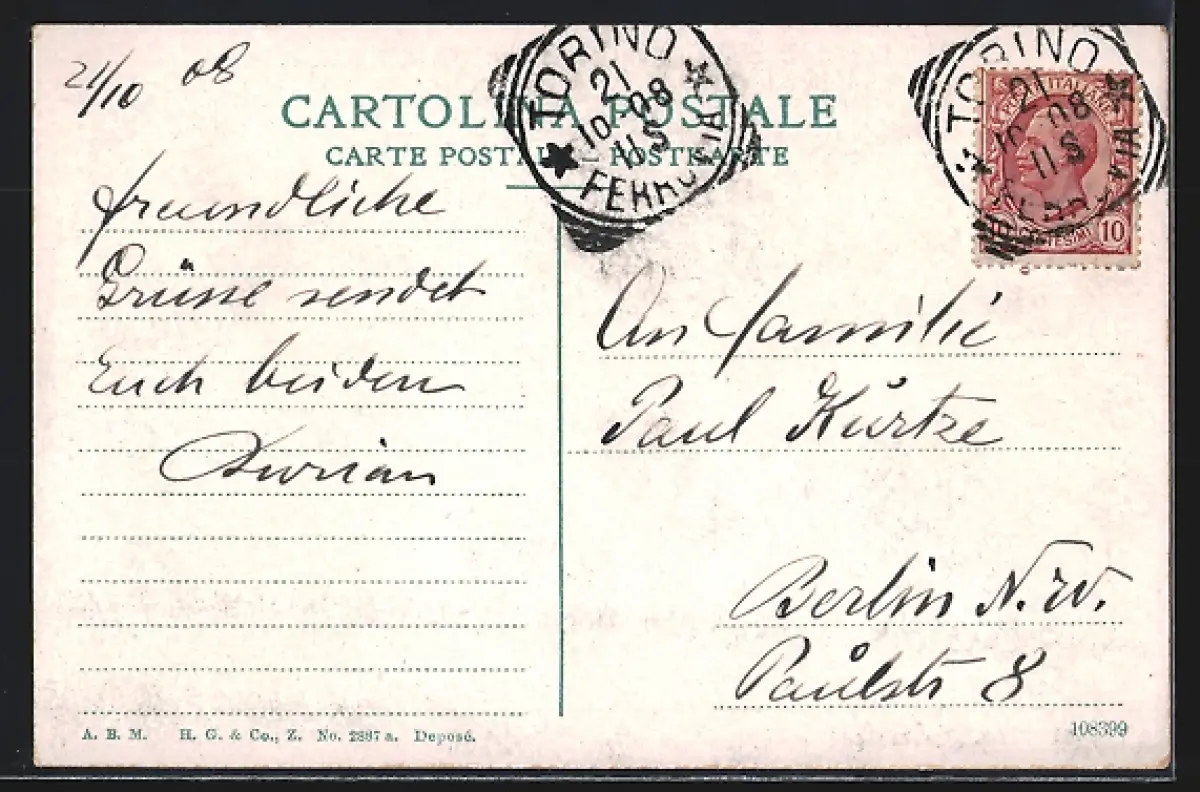 21/10 08
CARTOLINA POSTALE
CARTE POSTALE POSTKARTE
TORINO
21
10-08
11 S
FERROVIA
TORINO
21
10-08
11 S
FERROVIA
POSTE ITALIANE
CENTESIMI 10
freundliche
Grüsse sendet
Euch beiden
An familie
Paul Kurtze
Berlin N.W.
Paulstr 8
A. B. M. H. G. & Co., Z. No. 2887 a. Deposé.
108399